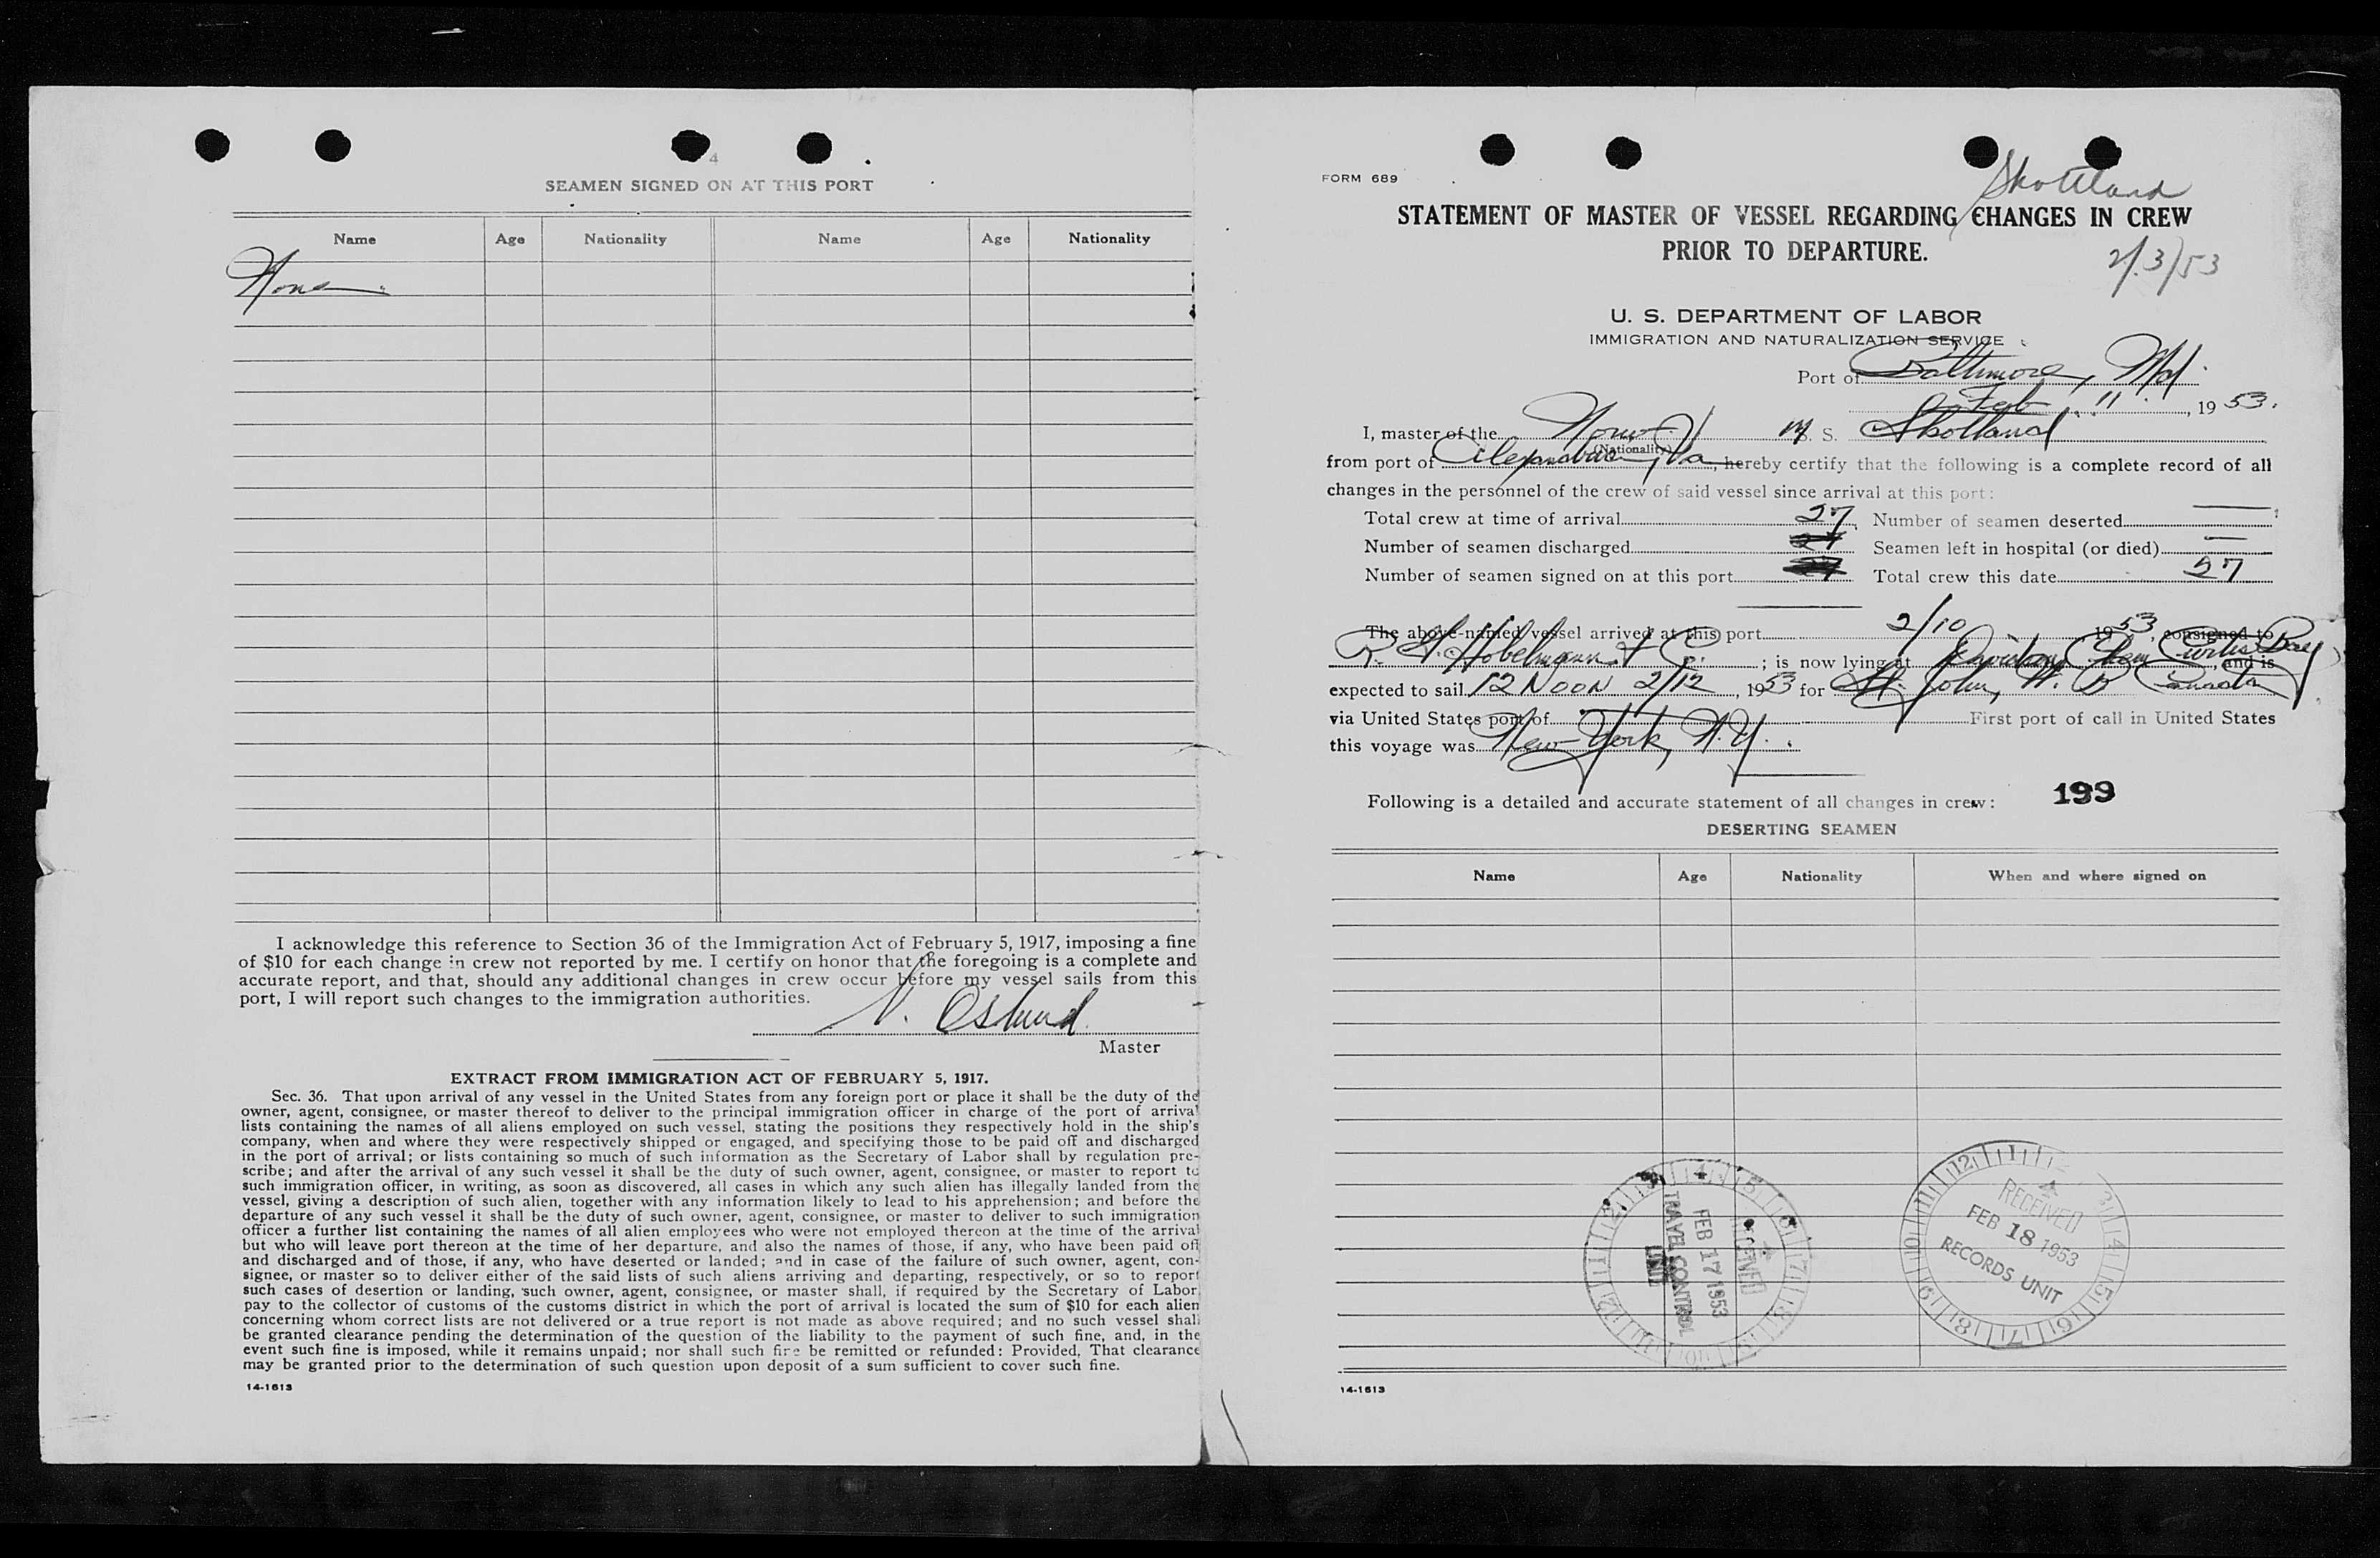 4
SEAMEN SIGNED ON AT THIS PORT
Name Age Nationality Name Age Nationality
None
I acknowledge this reference to Section 36 of the Immigration Act of February 5, 1917, imposing a fine
of $10 for each change in crew not reported by me. I certify on honor that the foregoing is a complete and
accurate report, and that, should any additional changes in crew occur before my vessel sails from this
port, I will report such changes to the immigration authorities.
Master
EXTRACT FROM IMMIGRATION ACT OF FEBRUARY 5, 1917.
Sec. 36. That upon arrival of any vessel in the United States from any foreign port or place it shall be the duty of the
owner, agent, consignee, or master thereof to deliver to the principal immigration officer in charge of the port of arrival
lists containing the names of all aliens employed on such vessel, stating the positions they respectively hold in the ship's
company, when and where they were respectively shipped or engaged, and specifying those to be paid off and discharged
in the port of arrival; or lists containing so much of such information as the Secretary of Labor shall by regulation pre-
scribe; and after the arrival of any such vessel it shall be the duty of such owner, agent, consignee, or master to report to
such immigration officer, in writing, as soon as discovered, all cases in which any such alien has illegally landed from the
vessel, giving a description of such alien, together with any information likely to lead to his apprehension; and before the
departure of any such vessel it shall be the duty of such owner, agent, consignee, or master to deliver to such immigration
officer a further list containing the names of all alien employees who were not employed thereon at the time of the arrival
but who will leave port thereon at the time of her departure, and also the names of those, if any, who have been paid off
and discharged and of those, if any, who have deserted or landed; and in case of the failure of such owner, agent, con-
signee, or master so to deliver either of the said lists of such aliens arriving and departing, respectively, or so to report
such cases of desertion or landing, such owner, agent, consignee, or master shall, if required by the Secretary of Labor,
pay to the collector of customs of the customs district in which the port of arrival is located the sum of $10 for each alien
concerning whom correct lists are not delivered or a true report is not made as above required; and no such vessel shall
be granted clearance pending the determination of the question of the liability to the payment of such fine, and, in the
event such fine is imposed, while it remains unpaid; nor shall such fine be remitted or refunded: Provided, That clearance
may be granted prior to the determination of such question upon deposit of a sum sufficient to cover such fine.
14-1613
FORM 689
Skotland
STATEMENT OF MASTER OF VESSEL REGARDING CHANGES IN CREW
PRIOR TO DEPARTURE.
2/3/53
U. S. DEPARTMENT OF LABOR
IMMIGRATION AND NATURALIZATION SERVICE
Port of Baltimore, Md.
Feb. 11, 1953.
I, master of the Norw. M. S. Skotland
(Nationality)
from port of Alexandria, Va, hereby certify that the following is a complete record of all
changes in the personnel of the crew of said vessel since arrival at this port:
Total crew at time of arrival 27 Number of seamen deserted —
Number of seamen discharged Seamen left in hospital (or died) —
Number of seamen signed on at this port Total crew this date 27
The above-named vessel arrived at this port 2/10, 1953, consigned to
Hobelmann & Co.; is now lying at Davidson Chem Curtis Bay, and is
expected to sail 12 NOON 2/12, 1953 for St. John, N. B Canada
via United States port of First port of call in United States
this voyage was New York, N.Y.
Following is a detailed and accurate statement of all changes in crew: 199
DESERTING SEAMEN
Name Age Nationality When and where signed on
RECEIVED
FEB 17 1953
TRAVEL CONTROL
UNIT
RECEIVED
FEB 18 1953
RECORDS UNIT
14-1613